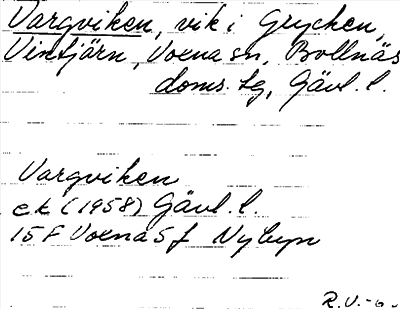 Vargviken, vik i Grycken,
Vintjärn, Voxna sn, Bollnäs
doms. tg, Gävl. l.
Vargviken
ek (1958) Gävl. l.
15F Voxna 5 f Nybyn
R.V.-6.